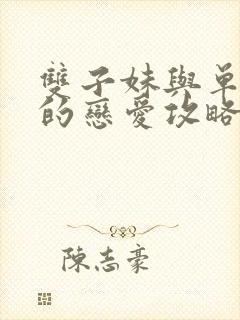 雙子妹與單
的戀愛攻略
陳志豪